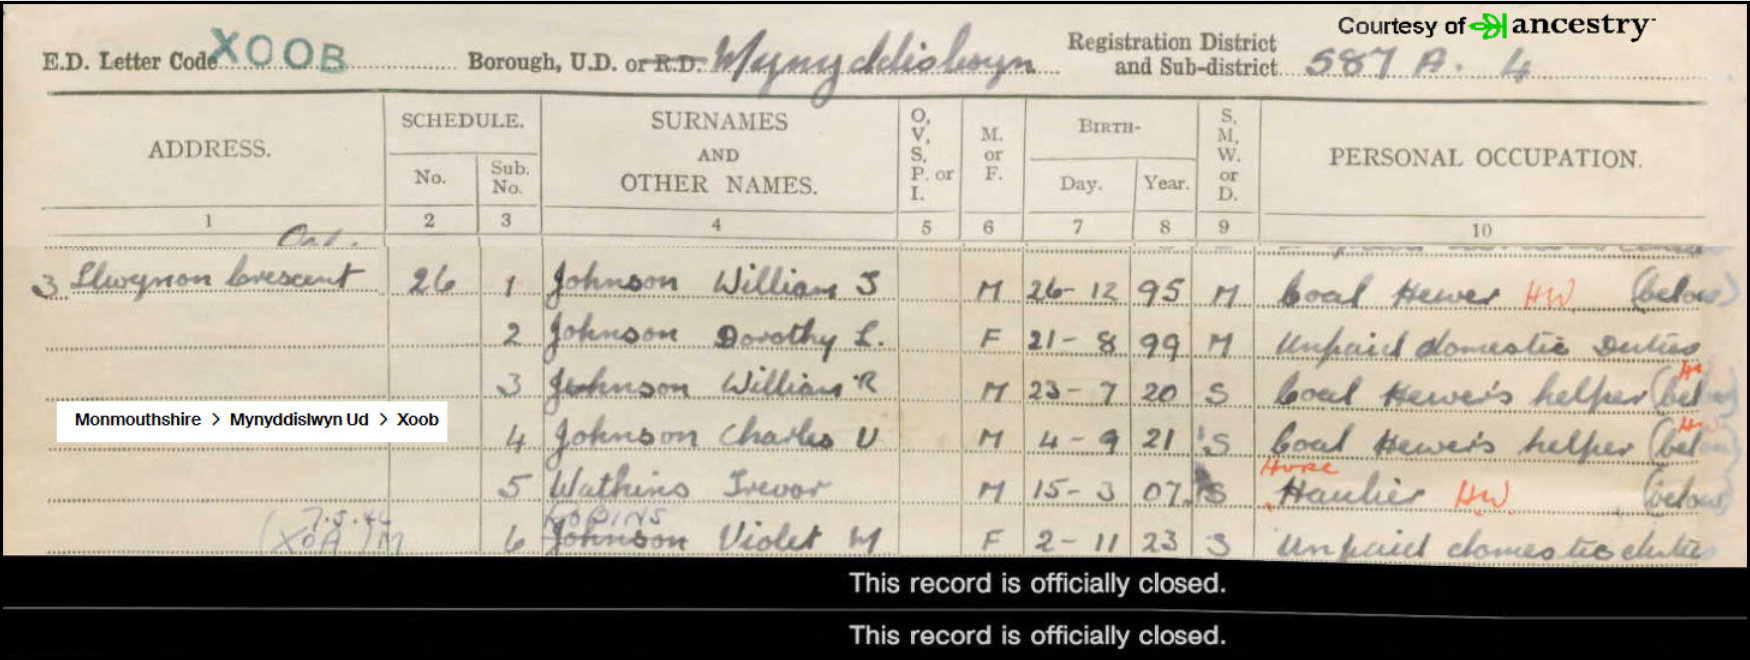 Courtesy of ancestry
E.D. Letter Code XOOB Borough, U.D. or R.D. Mynyddislwyn Registration District and Sub-district 587 A. 4
ADDRESS. SCHEDULE. No. Sub. No. SURNAMES AND OTHER NAMES. O, V, S, P. or I. M. or F. BIRTH- Day. Year. S, M, W. or D. PERSONAL OCCUPATION.
1 2 3 4 5 6 7 8 9 10
3 Llwynon Crescent 26 1 Johnson William J M 26-12 95 M Coal Hewer HW (below)
2 Johnson Dorothy L. F 21-8 99 M Unpaid domestic Duties
3 Johnson William R M 23-7 20 S Coal Hewer's helper (below
Monmouthshire > Mynyddislwyn Ud > Xoob
4 Johnson Charles V M 4-9 21 S Coal Hewer's helper (below
5 Watkins Trevor M 15-3 07 S Haulier HW (below)
7.5.46 ROBINS
(XOA) M 6 Johnson Violet M F 2-11 23 S Unpaid domestic duties
This record is officially closed.
This record is officially closed.